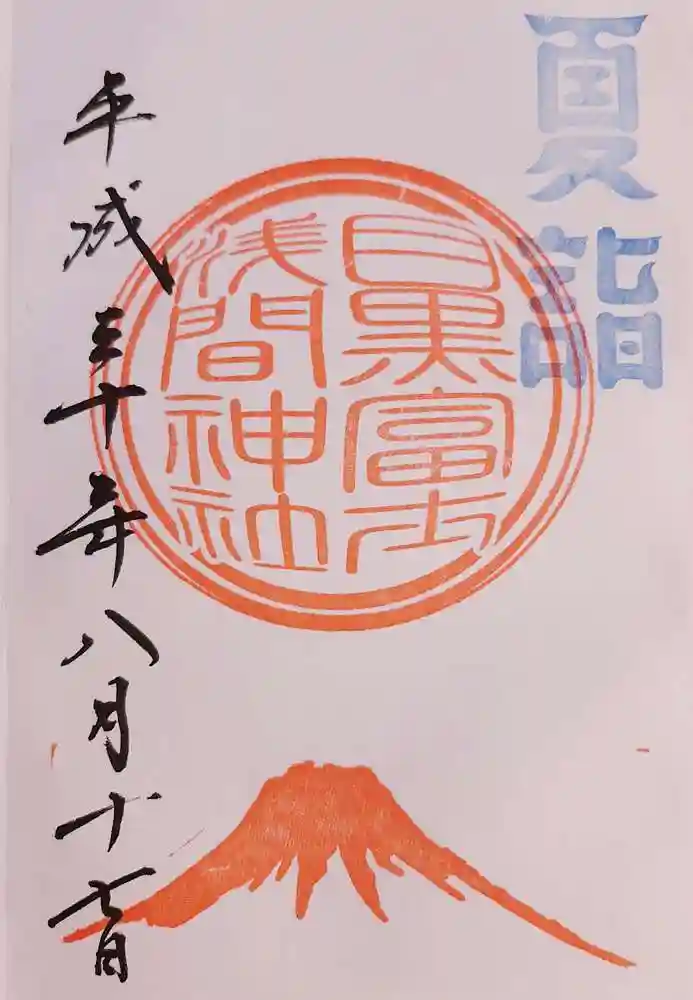 夏詣
目黒富士
浅間神社
平成三十年八月十七日